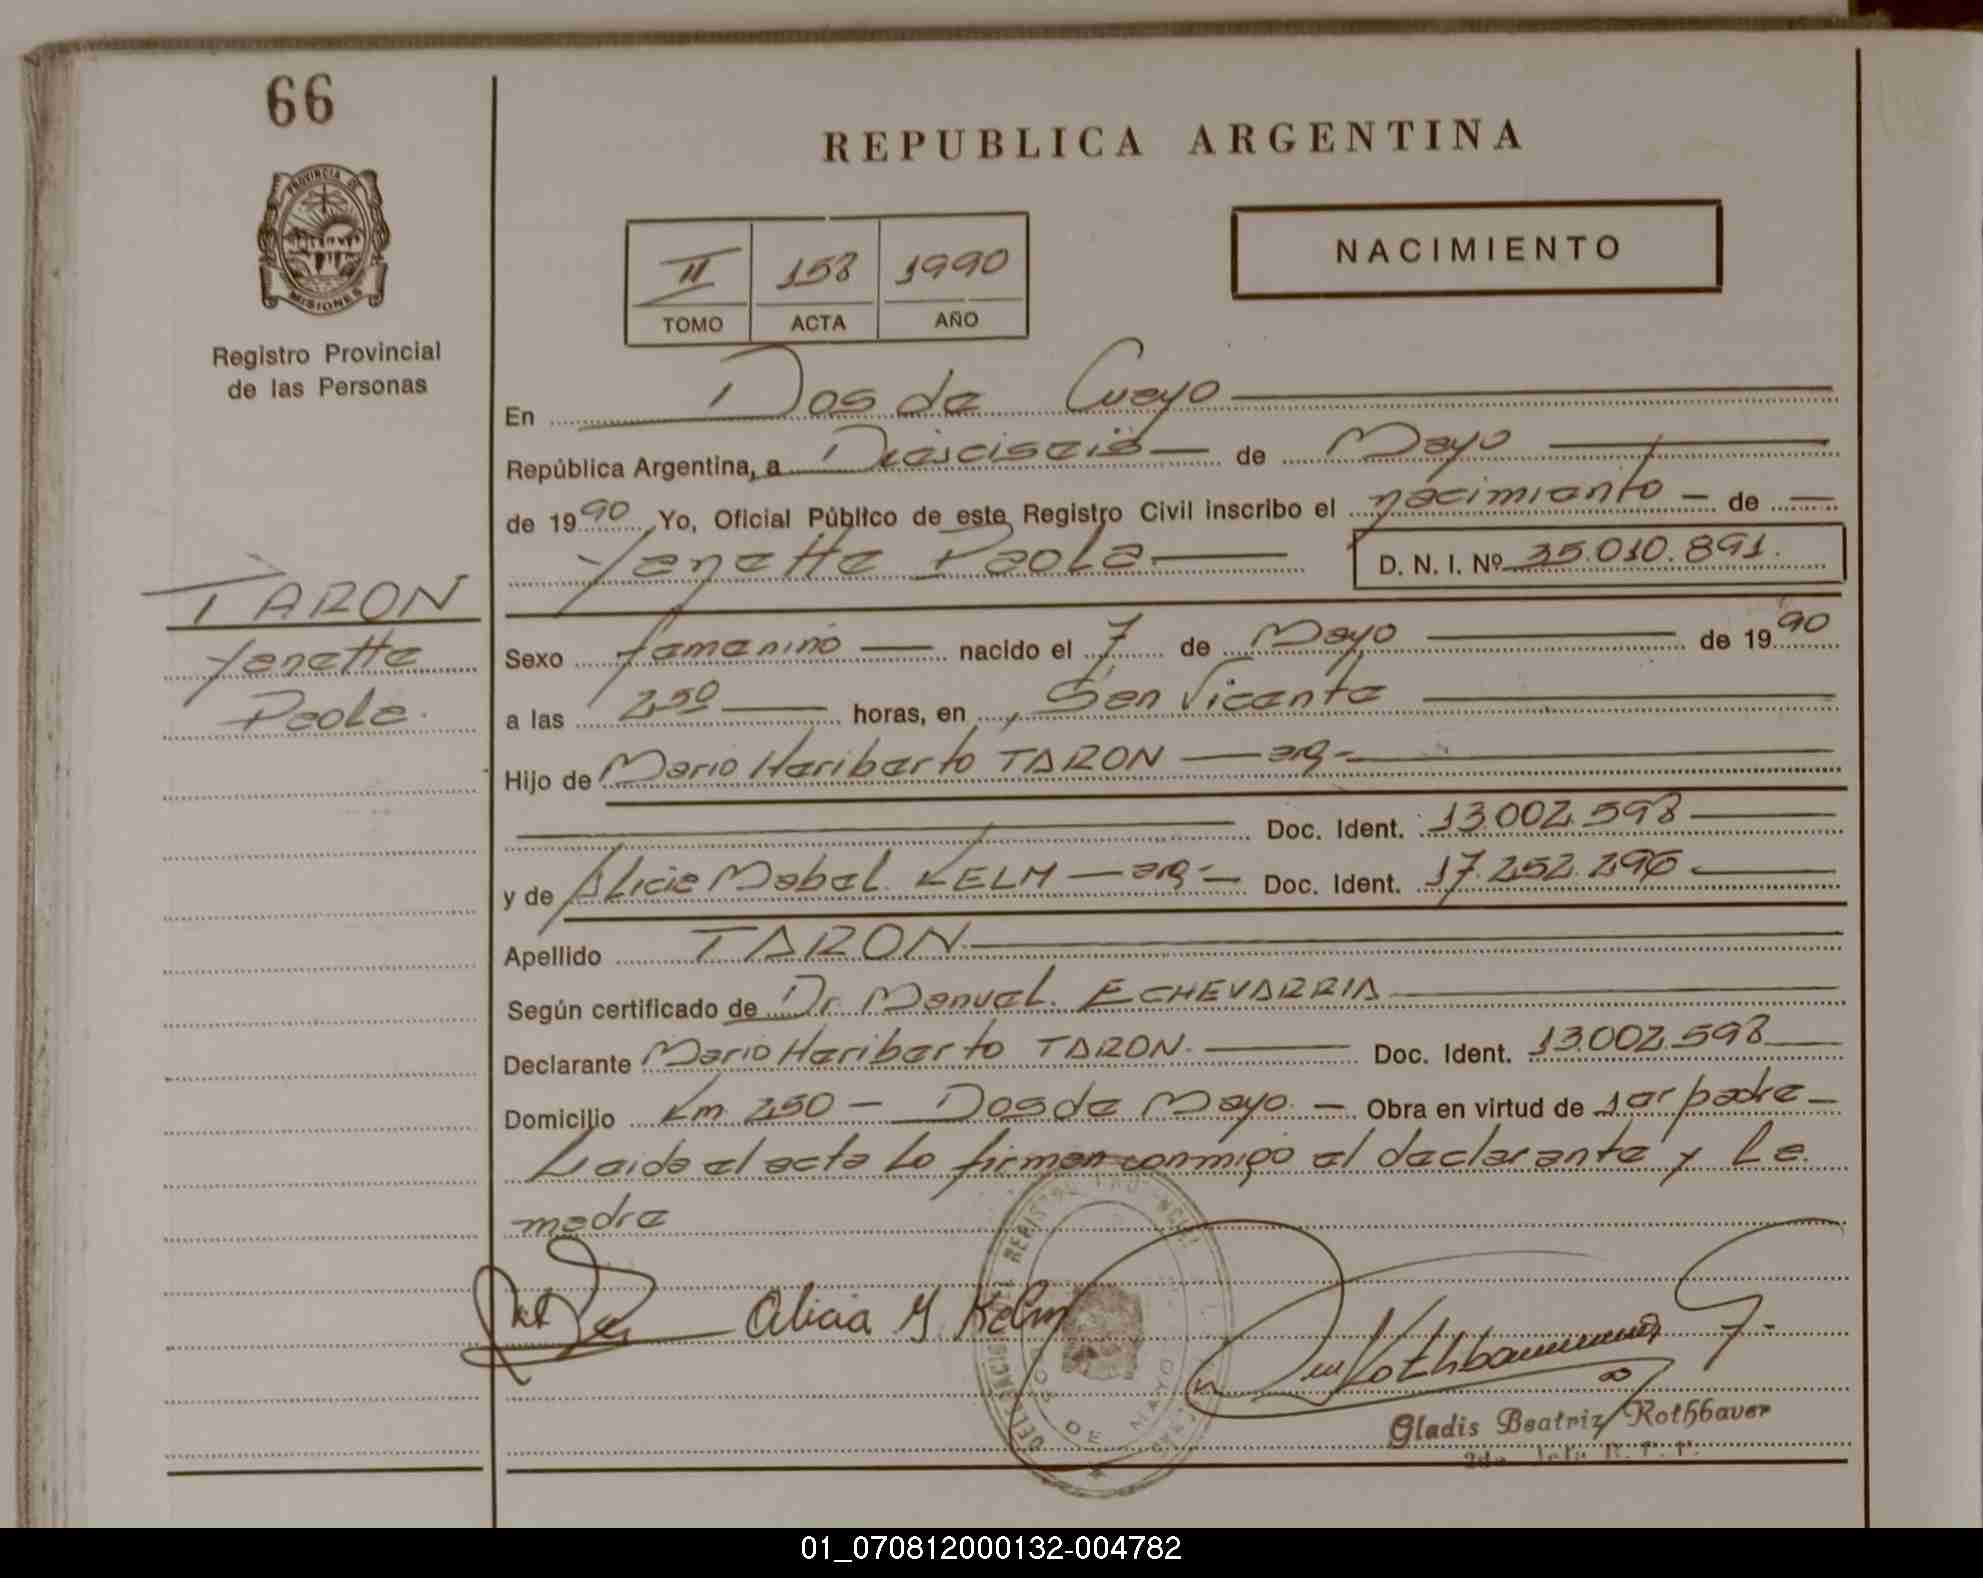 66
PROVINCIA DE
MISIONES
Registro Provincial
de las Personas
TARON
Yanette
Paola.
REPUBLICA ARGENTINA
II 158 1990
TOMO ACTA AÑO
NACIMIENTO
En Dos de Cuayo
República Argentina, a Dieciseis de Mayo
de 1990 Yo, Oficial Público de este Registro Civil inscribo el nacimiento de
Yanette Paola D. N. I. Nº 35.010.891.
Sexo femenino nacido el 7 de Mayo de 1990
a las 2,50 horas, en San Vicente
Hijo de Mario Heriberto TARON arg-
Doc. Ident. 13.002.598
y de Alicia Mabel KELM arg- Doc. Ident. 17.252.296
Apellido TARON
Según certificado de Dr. Manuel. ECHEVARRIA
Declarante Mario Heriberto TARON. Doc. Ident. 13.002.598
Domicilio Km 250 - Dos de Mayo. - Obra en virtud de ser padre
Leida el acta lo firman conmigo el declarante y la
madre
Alicia M. Kelm
DOS DE MAYO
Gladis Beatriz Rothbauer
2da. Jefe R. P. P.
01_070812000132-004782